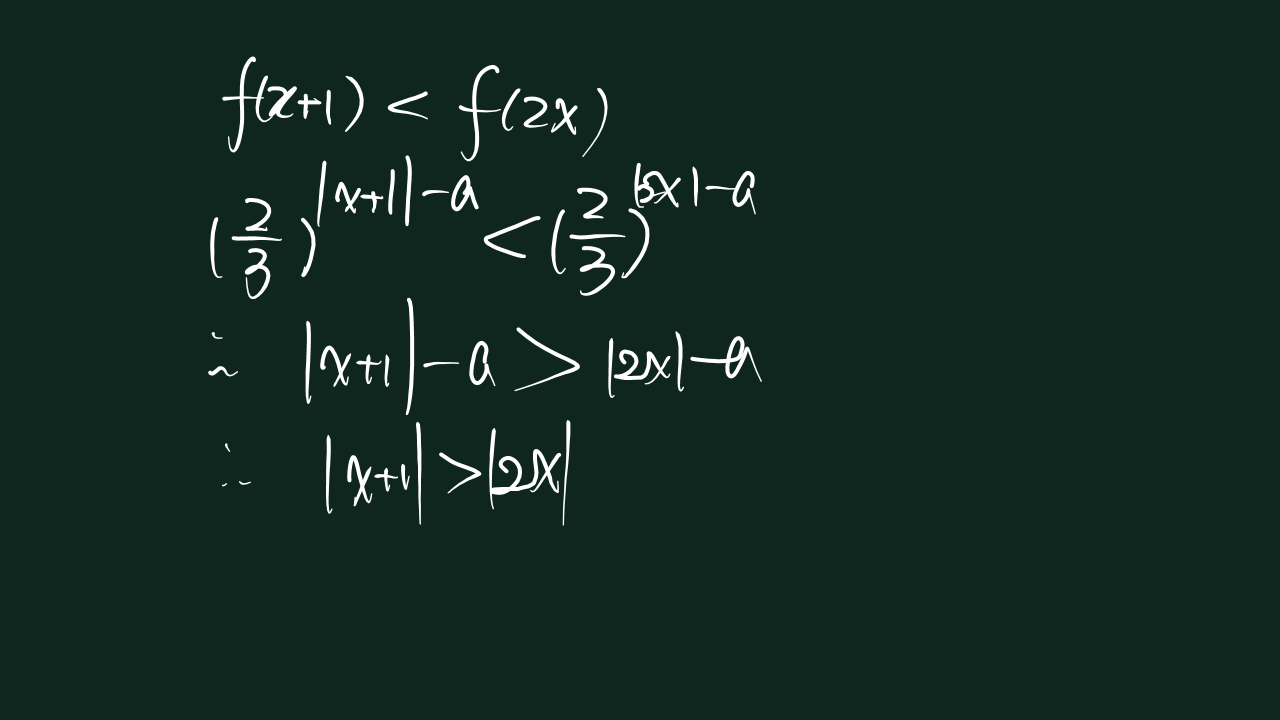 f(x+1) < f(2x)
(2/3)^{|x+1|-a} < (2/3)^{|2x|-a}
∴ |x+1|-a > |2x|-a
∴ |x+1| > |2x|